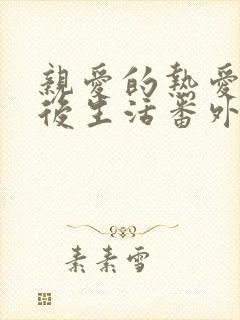 親愛的熱愛
後生活番外
素素雪